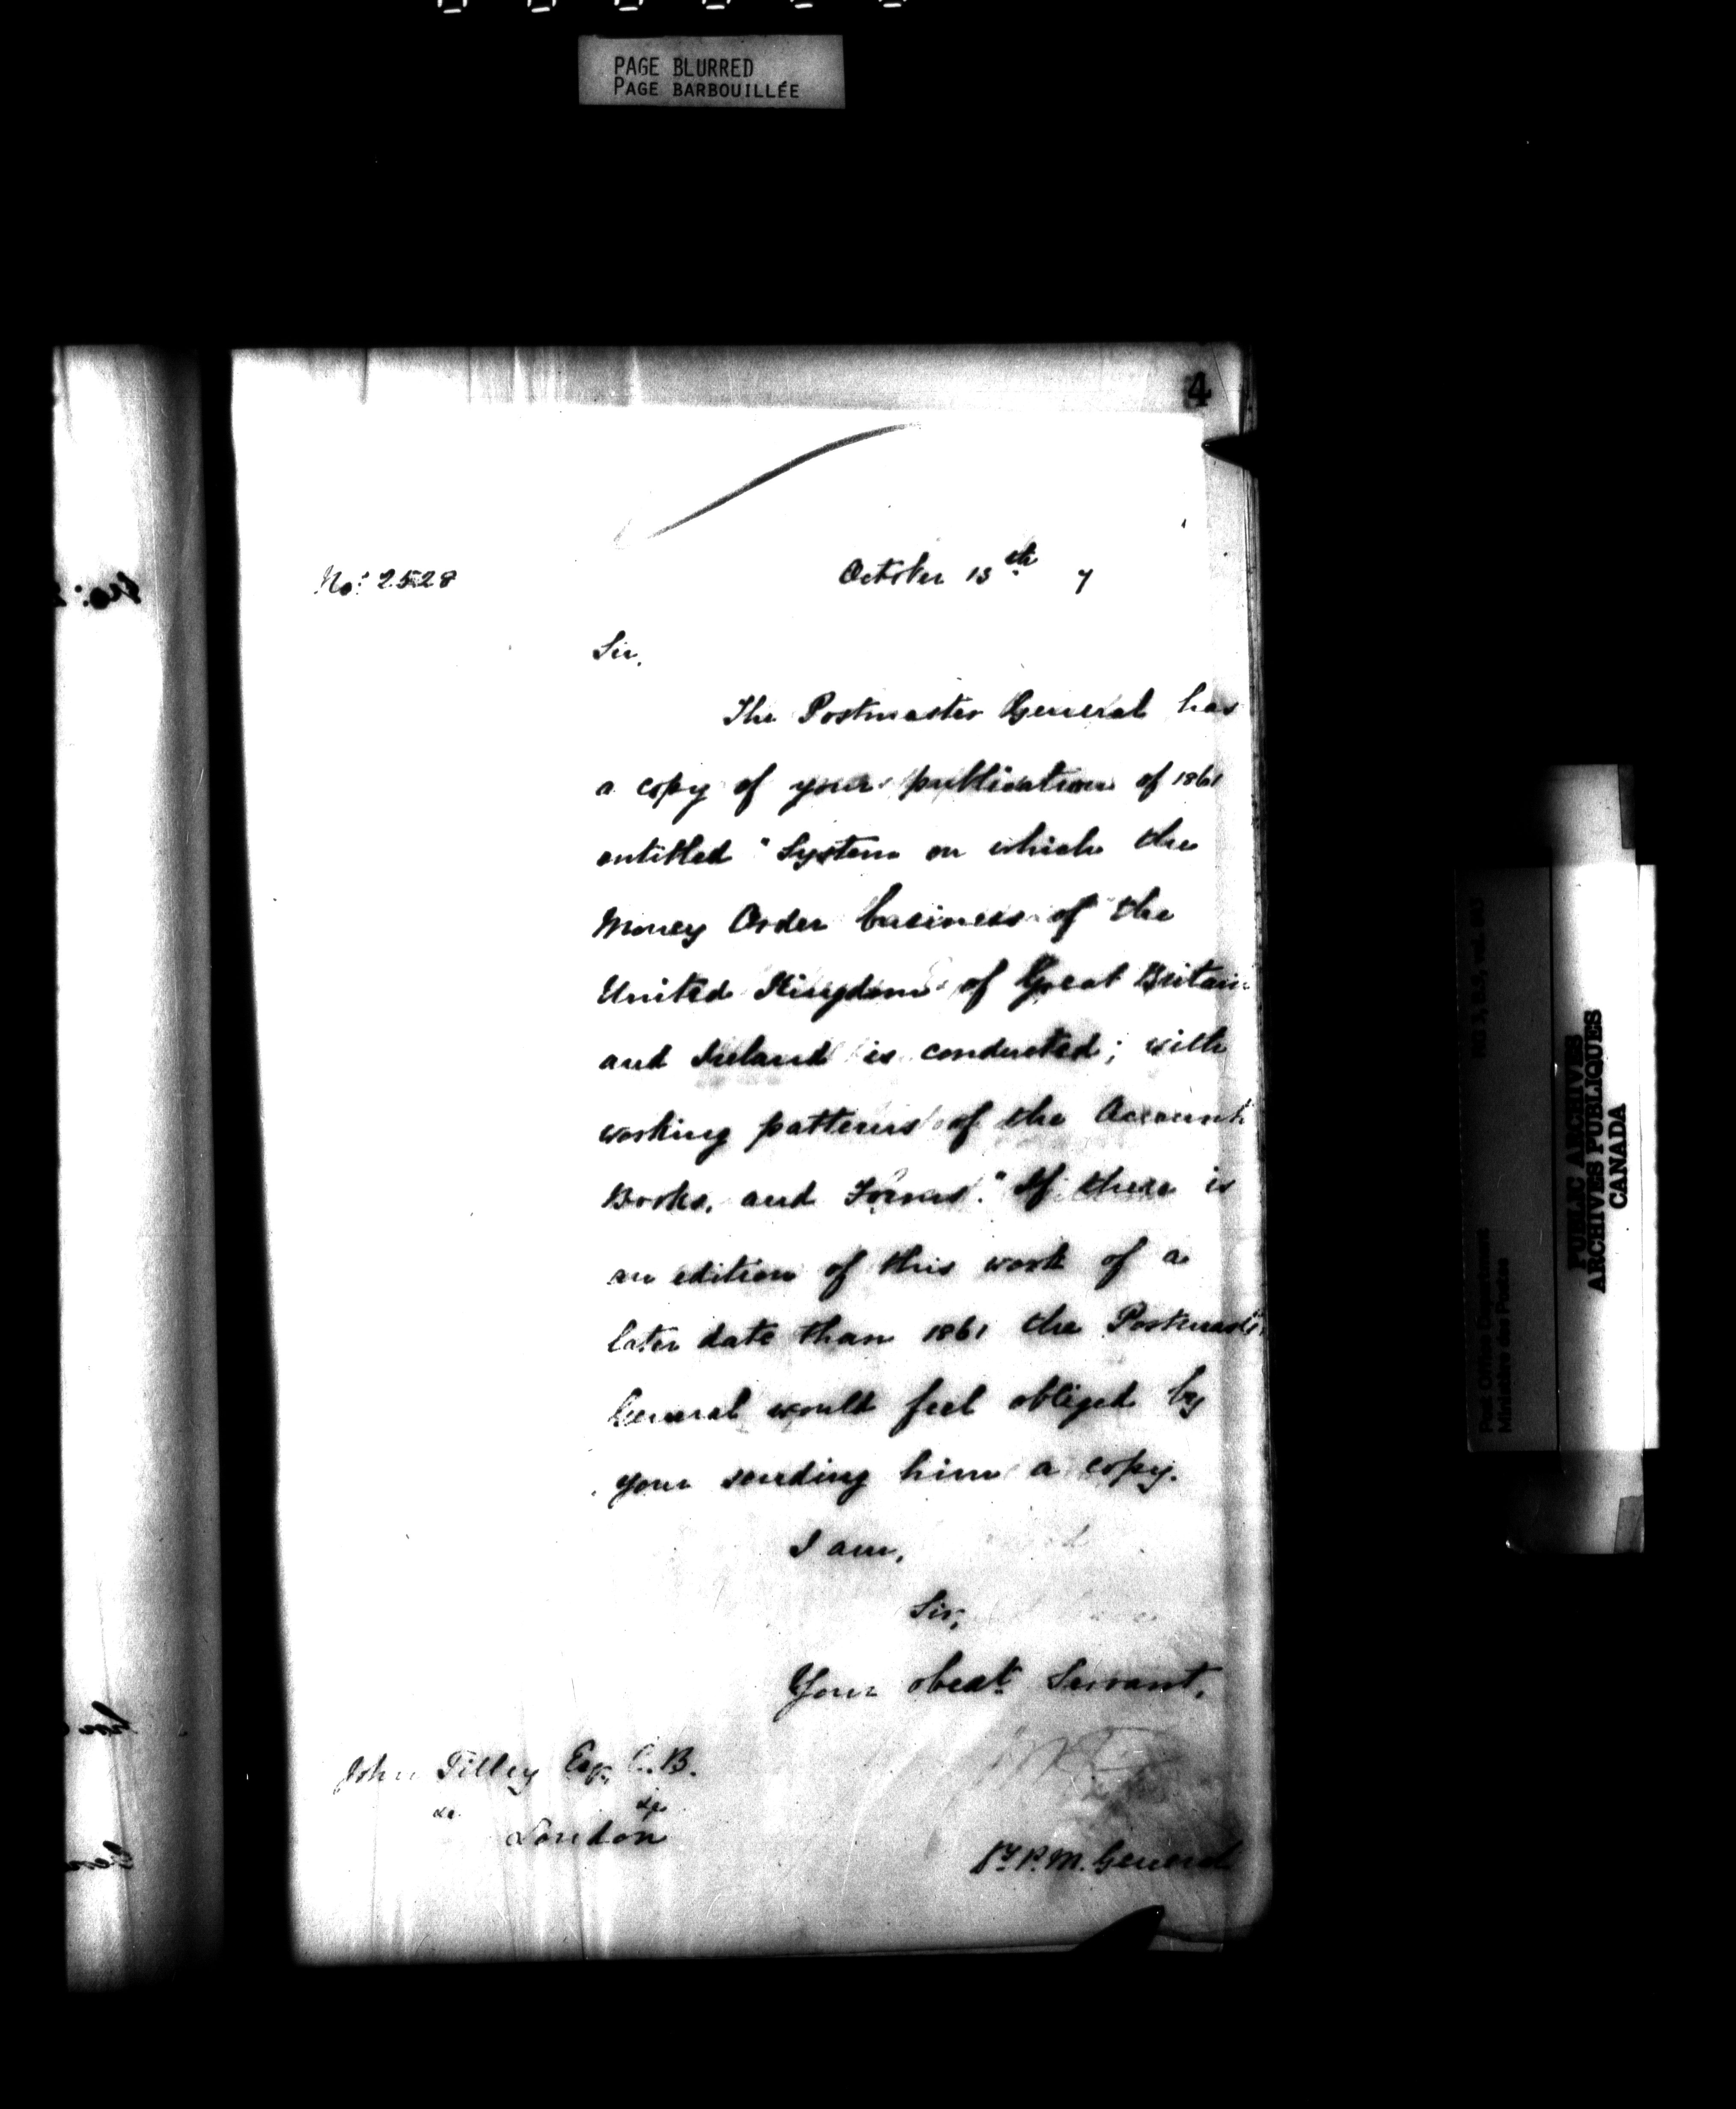 PAGE BLURRED
PAGE BARBOUILLÉE
4
No: 2528
October 15th 7
Sir,
The Postmaster General has
a copy of your publication of 1861
entitled "System on which the
Money Order business of the
United Kingdom of Great Britain
and Ireland is conducted; with
working patterns of the Account
Books, and Forms." If there is
an edition of this work of a
later date than 1861 the Postmaster
General would feel obliged by
your sending him a copy.
I am,
Sir,
Your obedt Servant,
John Tilley Esq. C.B.
&c &c
London
P.M. General
PUBLIC ARCHIVES
ARCHIVES PUBLIQUES
CANADA
Post Office Department
Ministère des Postes